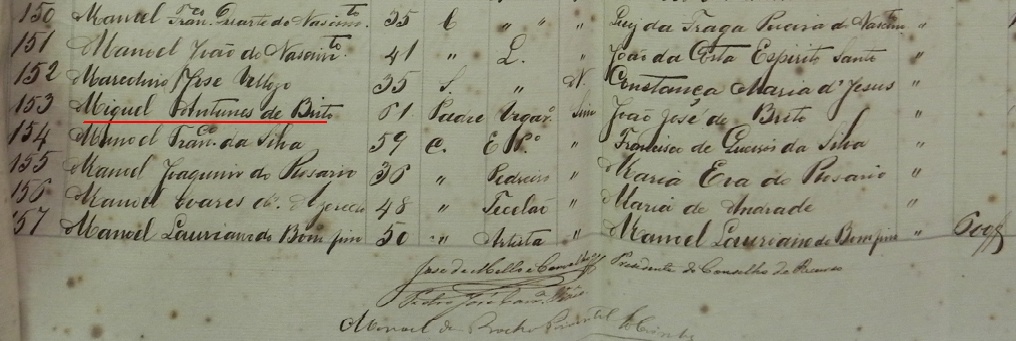 150 Manoel Fran.co Duarte do Nascim.to 35 C " " " da Fraga Pereira do Nascim "
151 Manoel João do Nascim.to 41 " L. " João da Costa Espirito Santo "
152 José 35 S. " N. Constança Maria d'Jesus "
153 Miguel Antunes de Brito 61 Padre Vigar.o Sim João José de Brito "
154 Manoel Fran.co da Silva 59 C. E P.o " Francisco de da Silva "
155 Manoel Joaquim do Rosario 36 " Pedreiro " Maria Eva do Rosario "
156 Manoel Soares d. 48 " Tecelão " Maria de Andrade "
157 Manoel Lauriano do Bomfim 50 " Artista " Manoel Lauriano do Bomfim " 600$
José de Mello e Presidente do Conselho de Recurso
Pedro José
Manoel da Rocha Pimentel